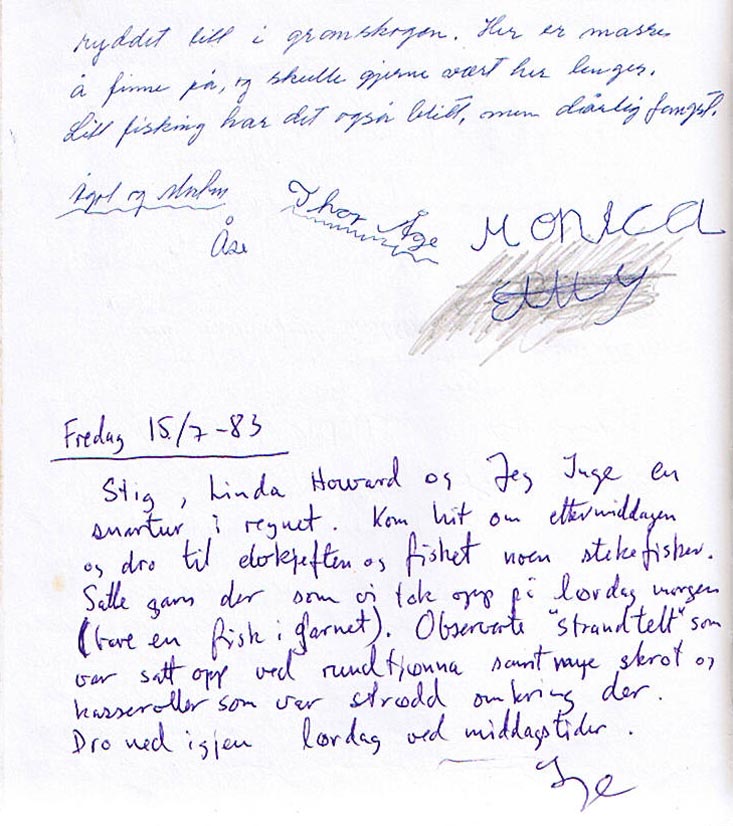 ryddet litt i granskogen. Her er masse
å finne på, og skulle gjerne vært her lenger.
Litt fisking har det også blitt, men dårlig fangst.
og
Thor Åge
Monica
Åse
Fredag 15/7-83
Stig, Linda Howard og Jeg Inge en
snartur i regnet. Kom hit om ettermiddagen
og dro til elvkjeften og fisket noen stekefisker.
Satte garn der som vi tok opp på lørdag morgen
(bare en fisk i garnet). Observerte "strandtelt" som
var satt opp ved rundtjønna samt mye skrot og
kasseroller som var strødd omkring der.
Dro ned igjen lørdag ved middagstider.
Inge